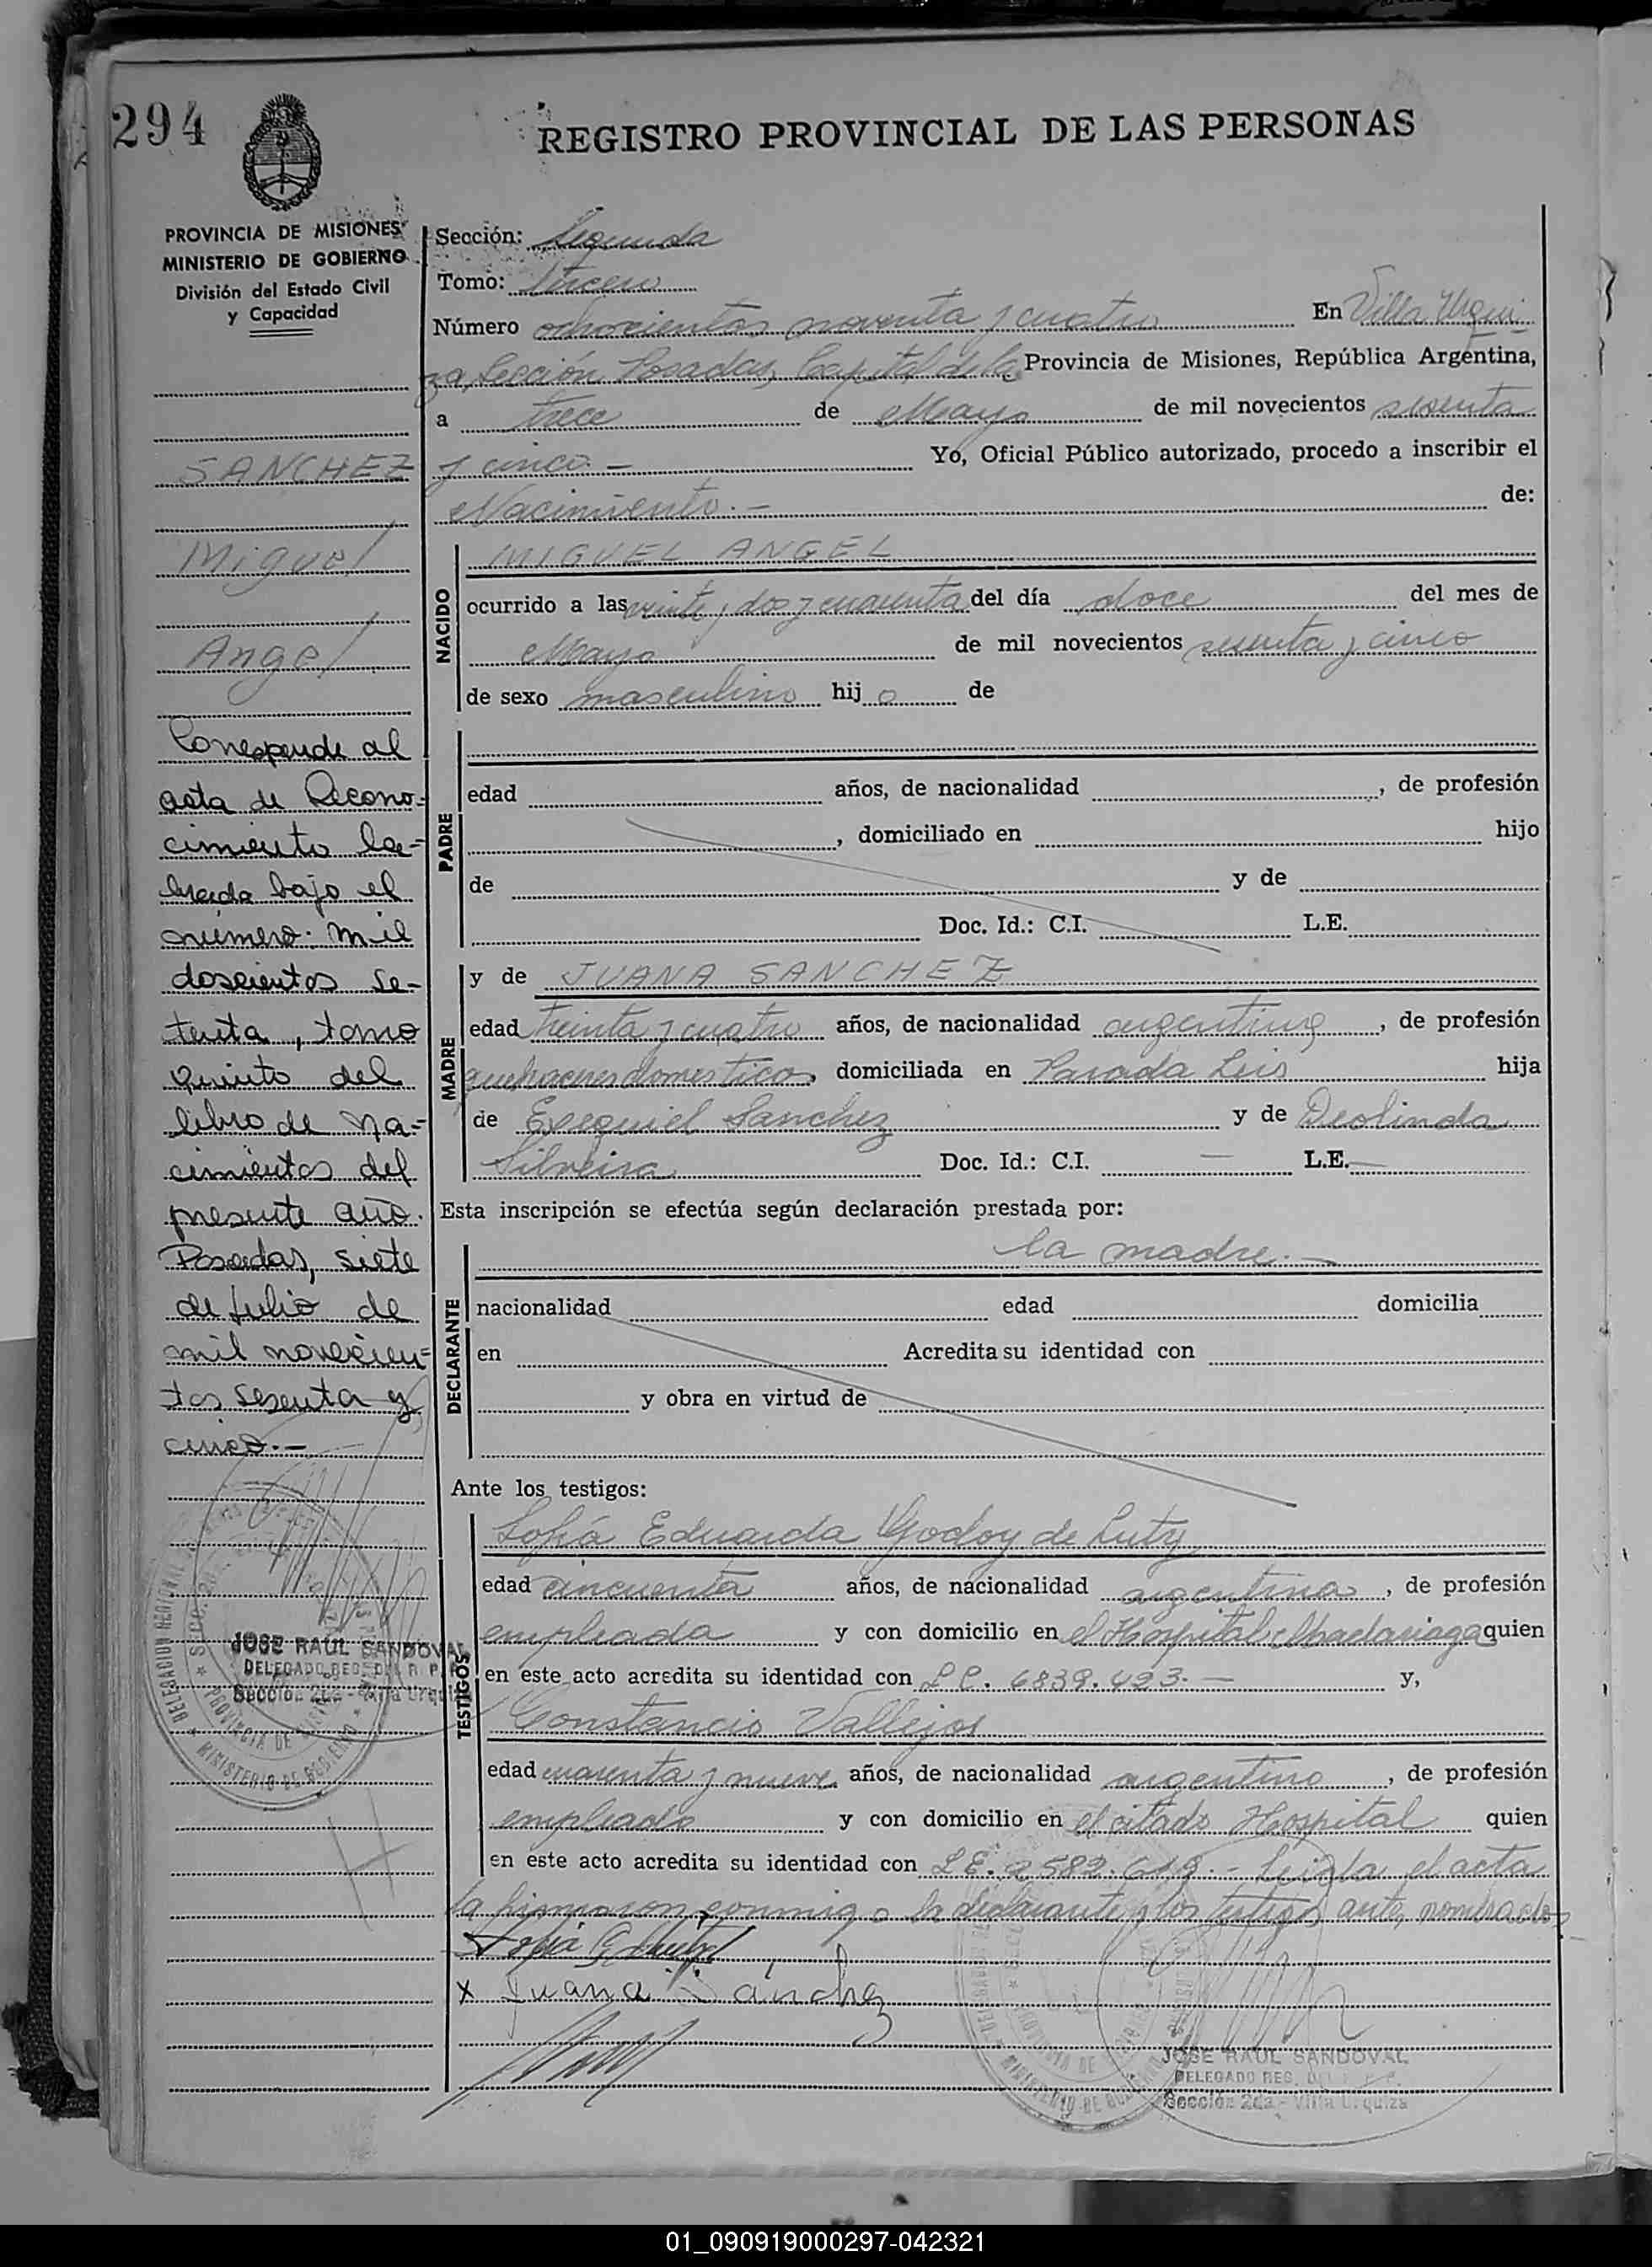 294
REGISTRO PROVINCIAL DE LAS PERSONAS
PROVINCIA DE MISIONES
MINISTERIO DE GOBIERNO
División del Estado Civil
y Capacidad
SANCHEZ
Miguel
Angel
Corresponde al
acta de Recono-
cimiento la-
brada bajo el
número: mil
doscientos se-
tenta, tomo
quinto del
libro de na-
cimientos del
presente año.
Posadas, siete
de julio de
mil novecien-
tos sesenta y
cinco.-
JOSE RAUL SANDOVAL
DELEGADO REG. DEL R. P.
Sección 2da - Villa Urquiza
Sección: Segunda
Tomo: tercero
Número ochocientos noventa y cuatro En Villa Urqui-
za, Sección Posadas, Capital de la Provincia de Misiones, República Argentina,
a trece de Mayo de mil novecientos sesenta
y cinco.- Yo, Oficial Público autorizado, procedo a inscribir el
Nacimiento.- de:
NACIDO
MIGUEL ANGEL
ocurrido a las veinte y dos y cuarenta del día doce del mes de
Mayo de mil novecientos sesenta y cinco
de sexo masculino hijo de
PADRE
edad años, de nacionalidad , de profesión
, domiciliado en hijo
de y de
Doc. Id.: C.I. L.E.
MADRE
y de JUANA SANCHEZ
edad treinta y cuatro años, de nacionalidad argentina, de profesión
quehaceres domesticos, domiciliada en Parada Leis hija
de Exequiel Sanchez y de Deolinda
Silveira Doc. Id.: C.I. — L.E. —
Esta inscripción se efectúa según declaración prestada por:
DECLARANTE
la madre.-
nacionalidad edad domicilia
en Acredita su identidad con
y obra en virtud de
Ante los testigos:
TESTIGOS
Sofía Eduarda Godoy de Lutz
edad cincuenta años, de nacionalidad argentina, de profesión
empleada y con domicilio en el Hospital Madariaga quien
en este acto acredita su identidad con L.C. 6839.423.- y,
Constancio Vallejos
edad cuarenta y nueve años, de nacionalidad argentino, de profesión
empleado y con domicilio en el citado Hospital quien
en este acto acredita su identidad con L.E. 2582.619.- Leida el acta
la firmaron conmigo la declarante y los testigos antes nombrados
x Juana Sánchez
JOSE RAUL SANDOVAL
DELEGADO REG.
Sección 2da - Villa Urquiza
01_090919000297-042321